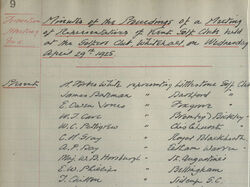 9
Formation Meeting Kent
Minutes of the Proceedings of a Meeting
of Representatives of Kent Golf Clubs held
at the Golfers Club, Whitehall on Wednesday
April 29th 1925.
Present H. Forbes White representing Littlestone Golf Club
James Bateman " Dartford "
E. Owen Jones " Foxgrove "
W. J. Cave " Bromley & Bickley "
W. C. Pettigrew " Chislehurst "
C. H. Gray " Royal Blackheath "
A. P. Day " Eltham Warren "
Maj. W. B. Horsburgh " St. Augustine's
E. W. Philcox " Bellingham
J. " Sidcup G.C.